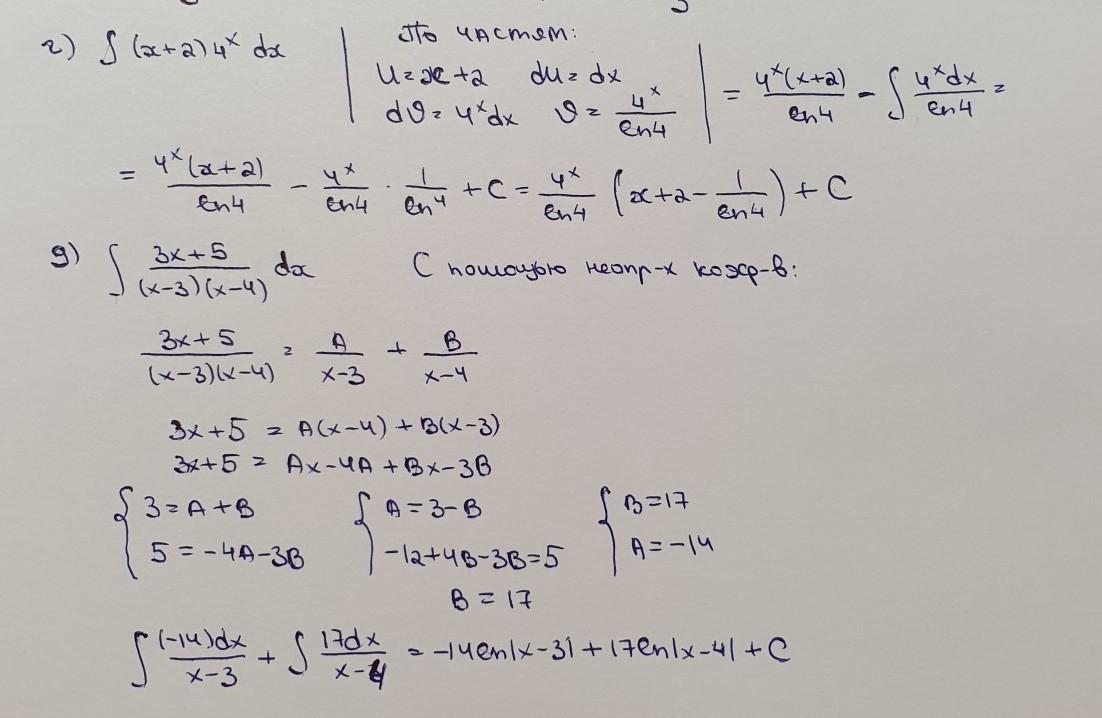 г) ∫ (x+2) 4^x dx | По частям: u = x+2 du = dx dϑ = 4^x dx ϑ = 4^x/ln4 | = 4^x(x+2)/ln4 − ∫ 4^x dx/ln4 =
= 4^x(x+2)/ln4 − 4^x/ln4 · 1/ln4 + C = 4^x/ln4 (x+2 − 1/ln4) + C
д) ∫ (3x+5)/((x−3)(x−4)) dx С помощью неопр-х коэф-в:
(3x+5)/((x−3)(x−4)) = A/(x−3) + B/(x−4)
3x+5 = A(x−4) + B(x−3)
3x+5 = Ax−4A+Bx−3B
{ 3 = A+B { A = 3−B { B = 17
5 = −4A−3B −12+4B−3B=5 A = −14
B = 17
∫ (−14)dx/(x−3) + ∫ 17dx/(x−4) = −14ln|x−3| + 17ln|x−4| + C